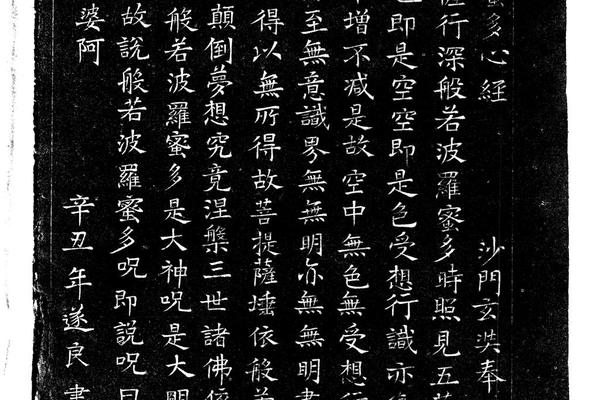 蜜多心經　沙門玄奘奉
行深般若波羅蜜多時照見五
即是空空即是色受想行識亦
增不减是故空中無色無受想行
至無意識界無無明亦無無明
得以無所得故菩提薩埵依般若
顛倒夢想究竟涅槃三世諸佛依
般若波羅蜜多是大神呪是大明
故説般若波羅蜜多呪即説呪曰
婆阿
辛丑年遂良書